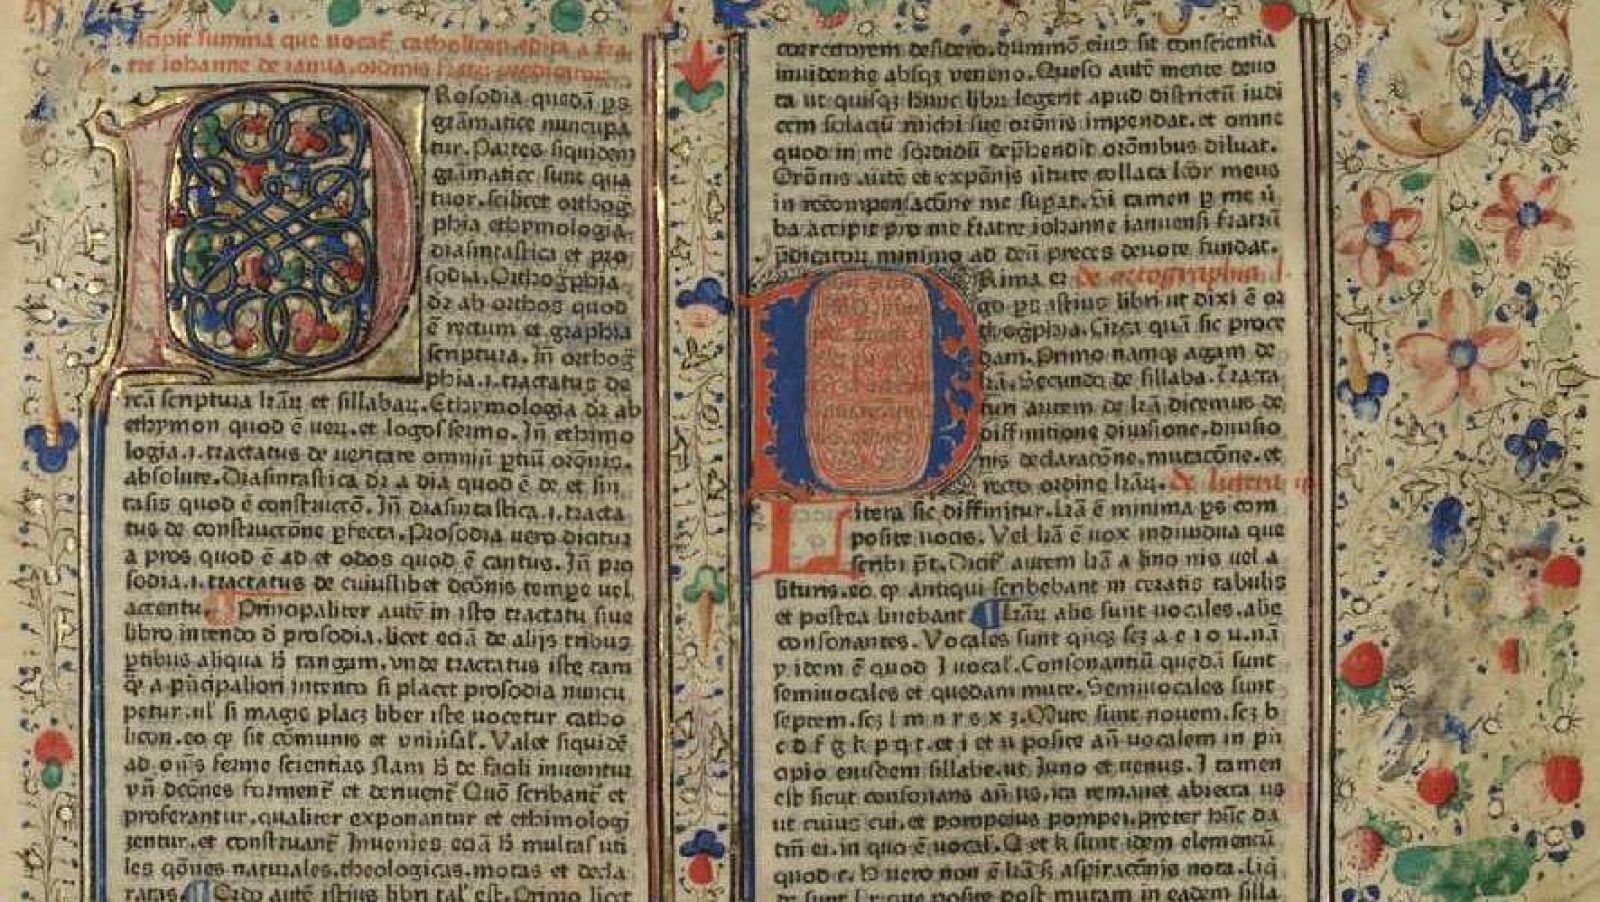 incipit summa que vocat̄ catholicon. edita a fra-
tre iohanne de ianua. ordinis fratrū predicatorū.
PRosodia quedā ps
grāmatice nuncupa
tur. Partes siquidem
grāmatice sunt qua
tuor. scilicet orthog̃
phia ethymologia.
diasintastica et pro
sodia. Orthog̃phia
dr̄ ab orthos quod
ē rectum et graphia
scriptura. Jn̄ orthog̃
phia .i. tractatus de
rcā scriptura lr̄aꝝ et sillabaꝝ. Ethymologia dr̄ ab
ethymon quod ē ueꝝ. et logos sermo. Jn̄ ethimo
logia .i. tractatus de ueritate omniū ꝑtiū or̄onis.
absolute. Diasintastica dr̄ a dia quod ē de et sin
tasis quod ē constructō. Jn̄ diasintastica .i. tracta
tus de constructōne ꝑfecta. Prosodia uero dicitur
a pros quod ē ad et odos quod ē cantus. Jn̄ pro
sodia .i. tractatus de cuiuslibet dcōnis tempe uel
accentu. Principaliter autē in isto tractatu siue
libro intendo d̄ prosodia. licet eciā de alijs tribus
ꝑtibus aliqua h̄ tangam. vnde tractatus iste tam
q̄ꝫ a pn̄cipaliori intento si placet prosodia nuncu
petur. ul̄ si magis placꝫ liber iste uocetur catho
licon. eo ꝙ sit cōmunis et vniūsal̄. Valet siquidē
ad om̄s ferme scientias Nam h̄ de facili inuenitur
vn̄ dcōnes forment̄ et deriuent̄ Quō scribant̄ et
proferantur. qualiter exponantur et ethimologi
zentur. et construant̄ Jnuenies eciā h̄ multas uti
les q̄ones naturales. theologicas. motas et decla
ratas. Ordo autē istius libri tal̄ est. Primo licet
correctorem desidero. dummō eius sit conscientia
inuidentie absqꝫ veneno. Queso autē mente deuo
ta ut quisqꝫ hunc librū legerit apud districtū iudi
cem solaciū michi sue or̄onis impendat. et omne
quod in me sordidū dep̄hendit or̄onibus diluat.
Or̄onis autē et expōnis ūtute collata l̄cor meus
in recōmpensacōne me supat. Vt tamen ꝑ me ū
ba accipit pro me fratre iohanne ianuensi fratrū
p̄dicatoꝝ minimo ad deū preces deuote fundat.
PRima de ortographia
go ps istius libri ut dixi ē or
thog̃phia. Circa quā sic proce
dam. Primo namqꝫ agam de
lr̄a. Secundo de sillaba. Tracta
turi autem de lr̄a dicemus de
diffinitione diuisione. diuisio
nis declaracōne. mutacōne. et
recto ordine lr̄aꝝ. de littera
Litera sic diffinitur. Lr̄a ē minima ps com
posite uocis. Vel lr̄a ē uox indiuidua que
scribi p̄t. Dicit̄ autem lr̄a a lino nis uel a
lituris. eo ꝙ antiqui scribebant in ceratis tabulis
et postea linebant lr̄aꝝ alie sunt uocales. alie
consonantes. Vocales sunt qn̄qꝫ scꝫ a e i o u. nā
y idem ē quod J uocal̄. Consonantiū quedā sunt
semiuocales et quedam mute. Semiuocales sunt
septem. scꝫ l m n r s x z. Mute sunt nouem. scꝫ b
c d f g k p q t. et i et u posite an̄ uocalem in pn̄
cipio eiusdem sillabe. ut Juno et uenus. J tamen
est sicut consonans an̄ us. ita remanet abiecta us
ut cuius cui. et pompeius pompei. preter huc da
tiū ei. in quo ē uocal̄. Q et k sunt idem elementū
quod c. H uero non ē lr̄a sꝫ aspiracōnis nota. Liq̄
posite post mutam in eadem silla